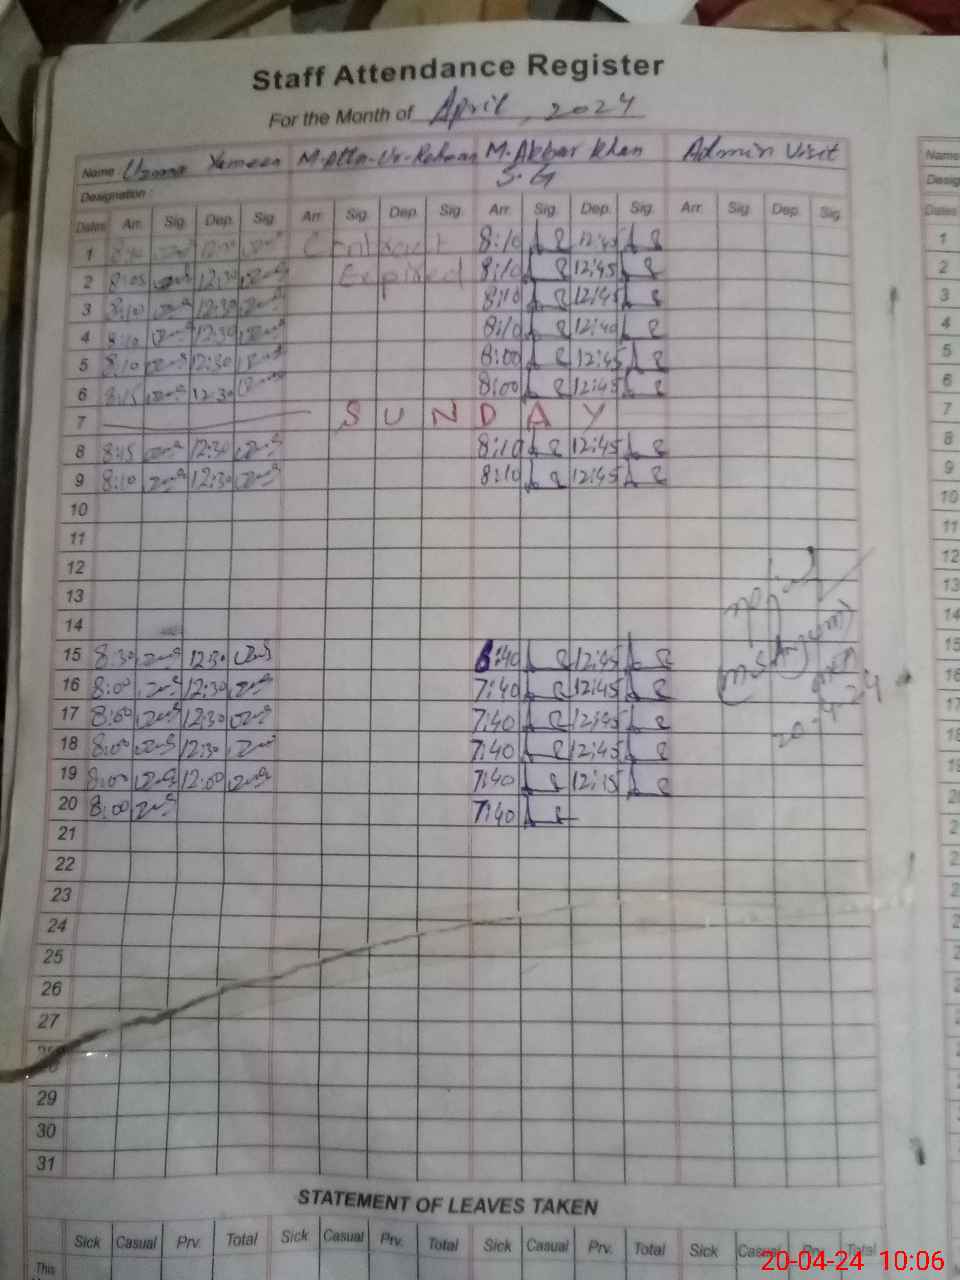 Staff Attendance Register
For the Month of April, 2024
Name Uzma Yameen M-Atta-Ur-Rehman M. Akbar Khan Admin Visit
Designation : S.G
Dates Arr. Sig. Dep. Sig. Arr. Sig. Dep. Sig. Arr. Sig. Dep. Sig. Arr. Sig. Dep. Sig.
1 Contract 8:10 12:45
2 8:05 12:30 Expired 8:10 12:45
3 8:10 12:30 8:10 12:45
4 8:10 12:30 8:10 12:40
5 8:10 12:30 8:00 12:45
6 8:15 12:30 8:00 12:45
7 SUNDAY
8 8:15 12:30 8:10 12:45
9 8:10 12:30 8:10 12:45
10
11
12
13
14
15 8:30 12:30 :40 12:45
16 8:00 12:30 7:40 12:45
17 8:00 12:30 7:40 12:45
18 8:00 12:30 7:40 12:45
19 8:00 12:00 7:40 12:15
20 8:00 7:40
20-4-24
21
22
23
24
25
26
27
29
30
31
STATEMENT OF LEAVES TAKEN
Sick Casual Prv. Total Sick Casual Prv. Total Sick Casual Prv. Total Sick Casual Prv. Total
This
20-04-24 10:06
Name
Dates
1
2
3
4
5
6
7
8
9
10
11
12
13
14
15
16
17
18